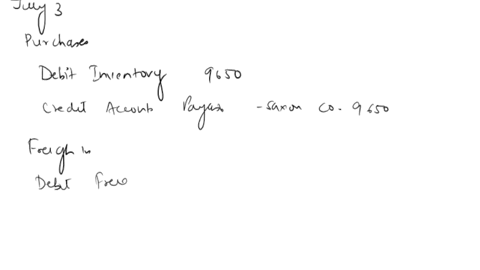 July 3
Purchases
Debit Inventory 9650
Credit Account Payable - Saxon Co. 9650
Freigh in
Debit Frei